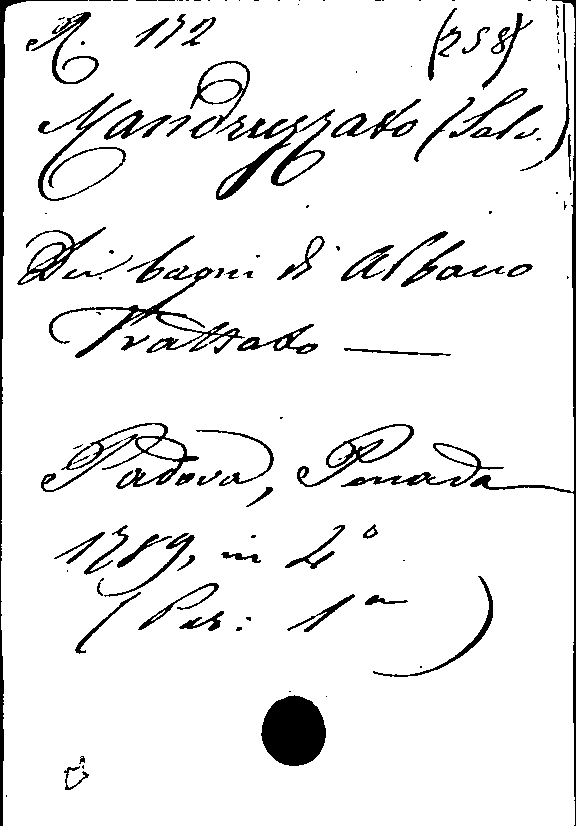 A. 172 (258)
Mandruzzato (Salv.)
Dei bagni di Albano
Trattato —
Padova, Penada
1789, in 4°
(Par: 1a)